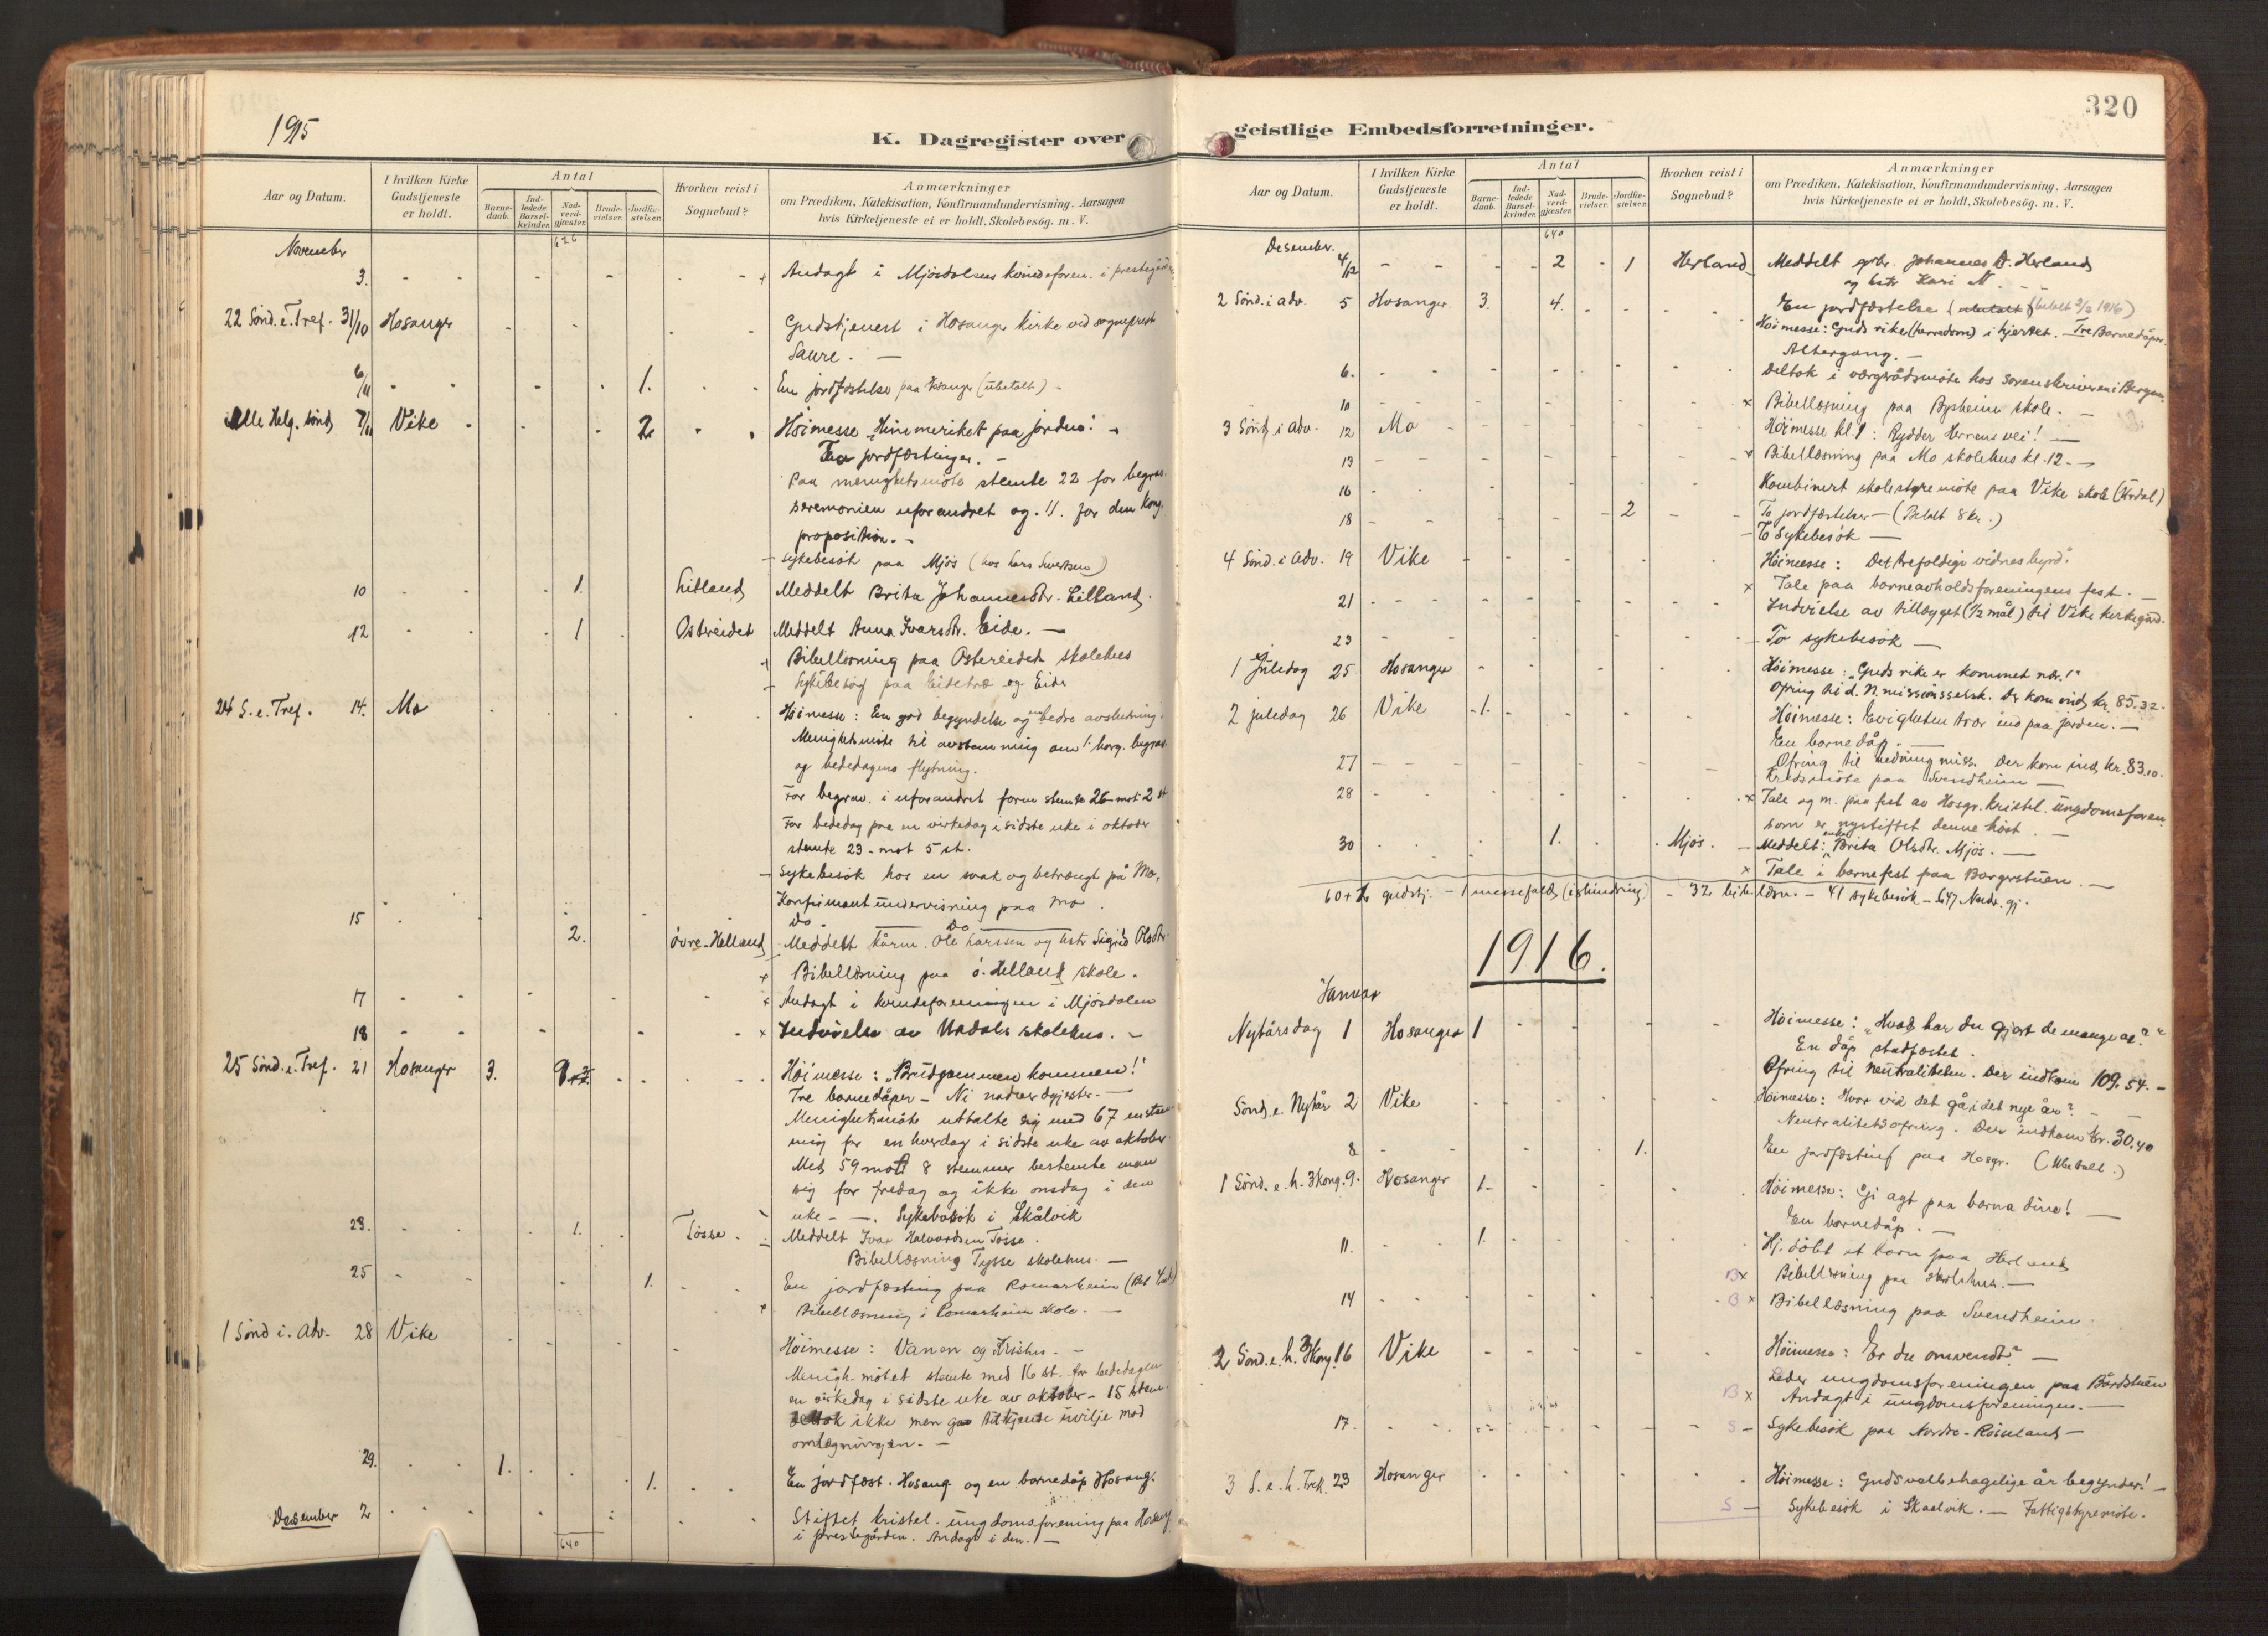 1915
K. Dagregister over
Aar og Datum. I hvilken Kirke Gudstjeneste er holdt. Antal Barne-daab. Ind-ledede Barsel-kvinder. Nad-verd-gjæster. Brude-vielser. Jordfæ-stelser. Hvorhen reist i Sognebud? Anmærkninger om Prædiken, Katekisation, Konfirmandundervisning. Aarsagen hvis Kirketjeneste ei er holdt. Skolebesög. m. V.
626
November
3. Andagt i Mjösdalens kvindeforen. i prestegården
22 Sönd. e. Tref. 31/10 Hosanger Gudstjenest i Hosanger kirke ved sogneprest
Saure. —
6/11 1. En jordfæstelse paa Hosanger (ubetalt) -
Alle Helg. sönd 7/11 Vike 2 Höimesse „Himmeriket paa jorden". -
To jordfæstinger. -
Paa menighetsmöte stemte 22 for begrav.
seremonien uforandret og 11 for den kong.
proposition. -
- Sykebesök paa Mjös (hos Lars Sivertsen)
10 1. Litland Meddelt Brita Johannesdtr. Litland.
12 1 Ostereidet Meddelt Anna Ivarsdtr. Eide. —
+ Bibellæsning paa Ostereidet skolehus
- Sykebesög paa Eidetræ og Eide
24 S. e. Tref. 14. Mo Höimesse: En god begyndelse og en bedre avslutning.
Menighetsmöte til avstemning om kong. begrav.
og bededagens flytning.
For begrav. i uforandret form stemte 26 mot 2 st
For bededag paa en virkedag i sidste uke i oktober
stemte 23 - mot 5 st.
- Sykebesök hos en svak og betrængt på Mo,
Konfirmantundervisning paa Mo.
15 Do. — Do —
2. Övre-Helland - Meddelt kårm. Ole Larssen og hstr Sigrid Olsdtr.
+ Bibellæsning paa ö. Helland skole.
17 x Andagt i kvindeforeningen i Mjösdalen
18 x Indvielse av Urdals skolehus. -
25 Sönd. e. Tref. 21 Hosanger 3. 9 Höimesse: „Brudgommen kommer!"
Tre barnedåper - Ni nadverdgjester. —
Menighetsmöte uttalte sig med 67 enstem-
mig for en hverdag i sidste uke av oktober
Med 59 mot 8 stemmer bestemte man
sig for fredag og ikke onsdag i den
uke - —. Sykebesök i Skålvik
23. 1. Tösse. - Meddelt Ivar Halvardsen Tösse.
Bibellæsning Tysse skolehus. —
25 1. En jordfæsting paa Romarheim
+ Bibellæsning i Romarheim skole. —
1 Sönd i. Adv. 28 Vike Höimesse: Vanen og Kristus. -
Menigh. mötet stemte med 16 st. for bededagen
en virkedag i sidste uke av oktober - 15 stem.
deltok ikke men gav tilkjende uvilje mod
omlægningen. —
29. 1. 1. En jordfæst. Hosang. og en barnedåp Hosang.
Desember 2 Stiftet kristel. ungdomsforening paa Hosang.
i prestegården. Andagt i den. —
640
320
geistlige Embedsforretninger.
Aar og Datum. I hvilken Kirke Gudstjeneste er holdt. Antal Barne-daab. Ind-ledede Barsel-kvinder. Nad-verd-gjæster. Brude-vielser. Jordfæ-stelser. Hvorhen reist i Sognebud? Anmærkninger om Prædiken, Katekisation, Konfirmandundervisning. Aarsagen hvis Kirketjeneste ei er holdt. Skolebesög. m. V.
640
Desember.
4/12 2 1 Herland - Meddelt Johannes Herland
og hstr Kari
En jordfæstelse (ubetalt) (betalt 1916)
2 Sönd. i adv. 5 Hosanger 3. 4. Höimesse: Guds rike (herredom) i hjertet. - Tre Barnedåper.
Altergang. —
6. Deltok i værgerådsmöte hos sorenskriveren i Bergen.
10 x Bibellæsning paa Bysheim skole. —
3 Sönd. i adv. 12 Mo Höimesse kl. 1: Rydder Herrens vei! —
13 x Bibellæsning paa Mo skolehus kl. 12. -
16 Kombinert skolestyremöte paa Vike skole (Urdal)
18 2 To jordfæstelser - (Betalt 8 kr.)
- To Sykebesök —
4 Sönd. i adv. 19 Vike Höimesse: Det trefoldige vidnesbyrd.
x Tale paa barneavholdsforeningens fest. —
21 Indvielse av tillægget (1/2 mål) til Vike kirkegård.
23 - To sykebesök —
1 Juledag 25 Hosanger Höimesse: „Guds rike er kommet nær!"
Ofring til d. N. missionsselsk. Der kom ind kr. 85.32.
2 juledag 26 Vike 1. Höimesse: Evigheten træ ind paa jorden. —
En barnedåp. —
Ofring til hedningmiss. Der kom ind kr. 83.10.
27 Kredsmöte paa Svendheim —
28 x Tale og m. paa fest av Hosgr. kristel. ungdomsforen.
som er nystiftet denne höst. —
30 1. Mjös. - Meddelt: enke Brita Olsdtr. Mjös. —
x Tale i barnefest paa Borgerstuen. —
60+1 gudstj. - 1 messefald (ishindring) - 32 bibellæsn. - 41 sykebesök - 647 Nadv. gj.
1916.
Januar
Nytårsdag 1 Hosanger 1 Höimesse: „Hvad har du gjort de mange år?"
En dåp stadfæstet.
Ofring til neutraliteten. Der indkom 109.54. -
Sönd. e. Nytår 2 Vike Höimesse: Hvor vil det gå i det nye år? —
Neutralitetsofring. Der indkom kr. 30.40
8 1. En jordfæsting paa Hosgr. (Ubetalt.)
1 Sönd. e. h. 3kong. 9. Hosanger 1. Höimesse: Gi agt paa barna dine! —
En barnedåp. —
11. 1. Hj. döbt et barn paa Herland
Bx Bibellæsning paa skolehus. —
14 B x Bibellæsning paa Svendheim.
2 Sönd. e. h. 3kong. 16 Vike Höimesse: Er du omvendt? —
Leder ungdomsforeningen paa Bårdstuen
B x Andagt i ungdomsforeningen. —
17. S - Sykebesök paa Nordre-Röiseland —
3 S. e. h. Trek. 23 Hosanger Höimesse: Guds velbehagelige år begynder! -
S - Sykebesök i Skaalvik. — Fattigstyremöte.